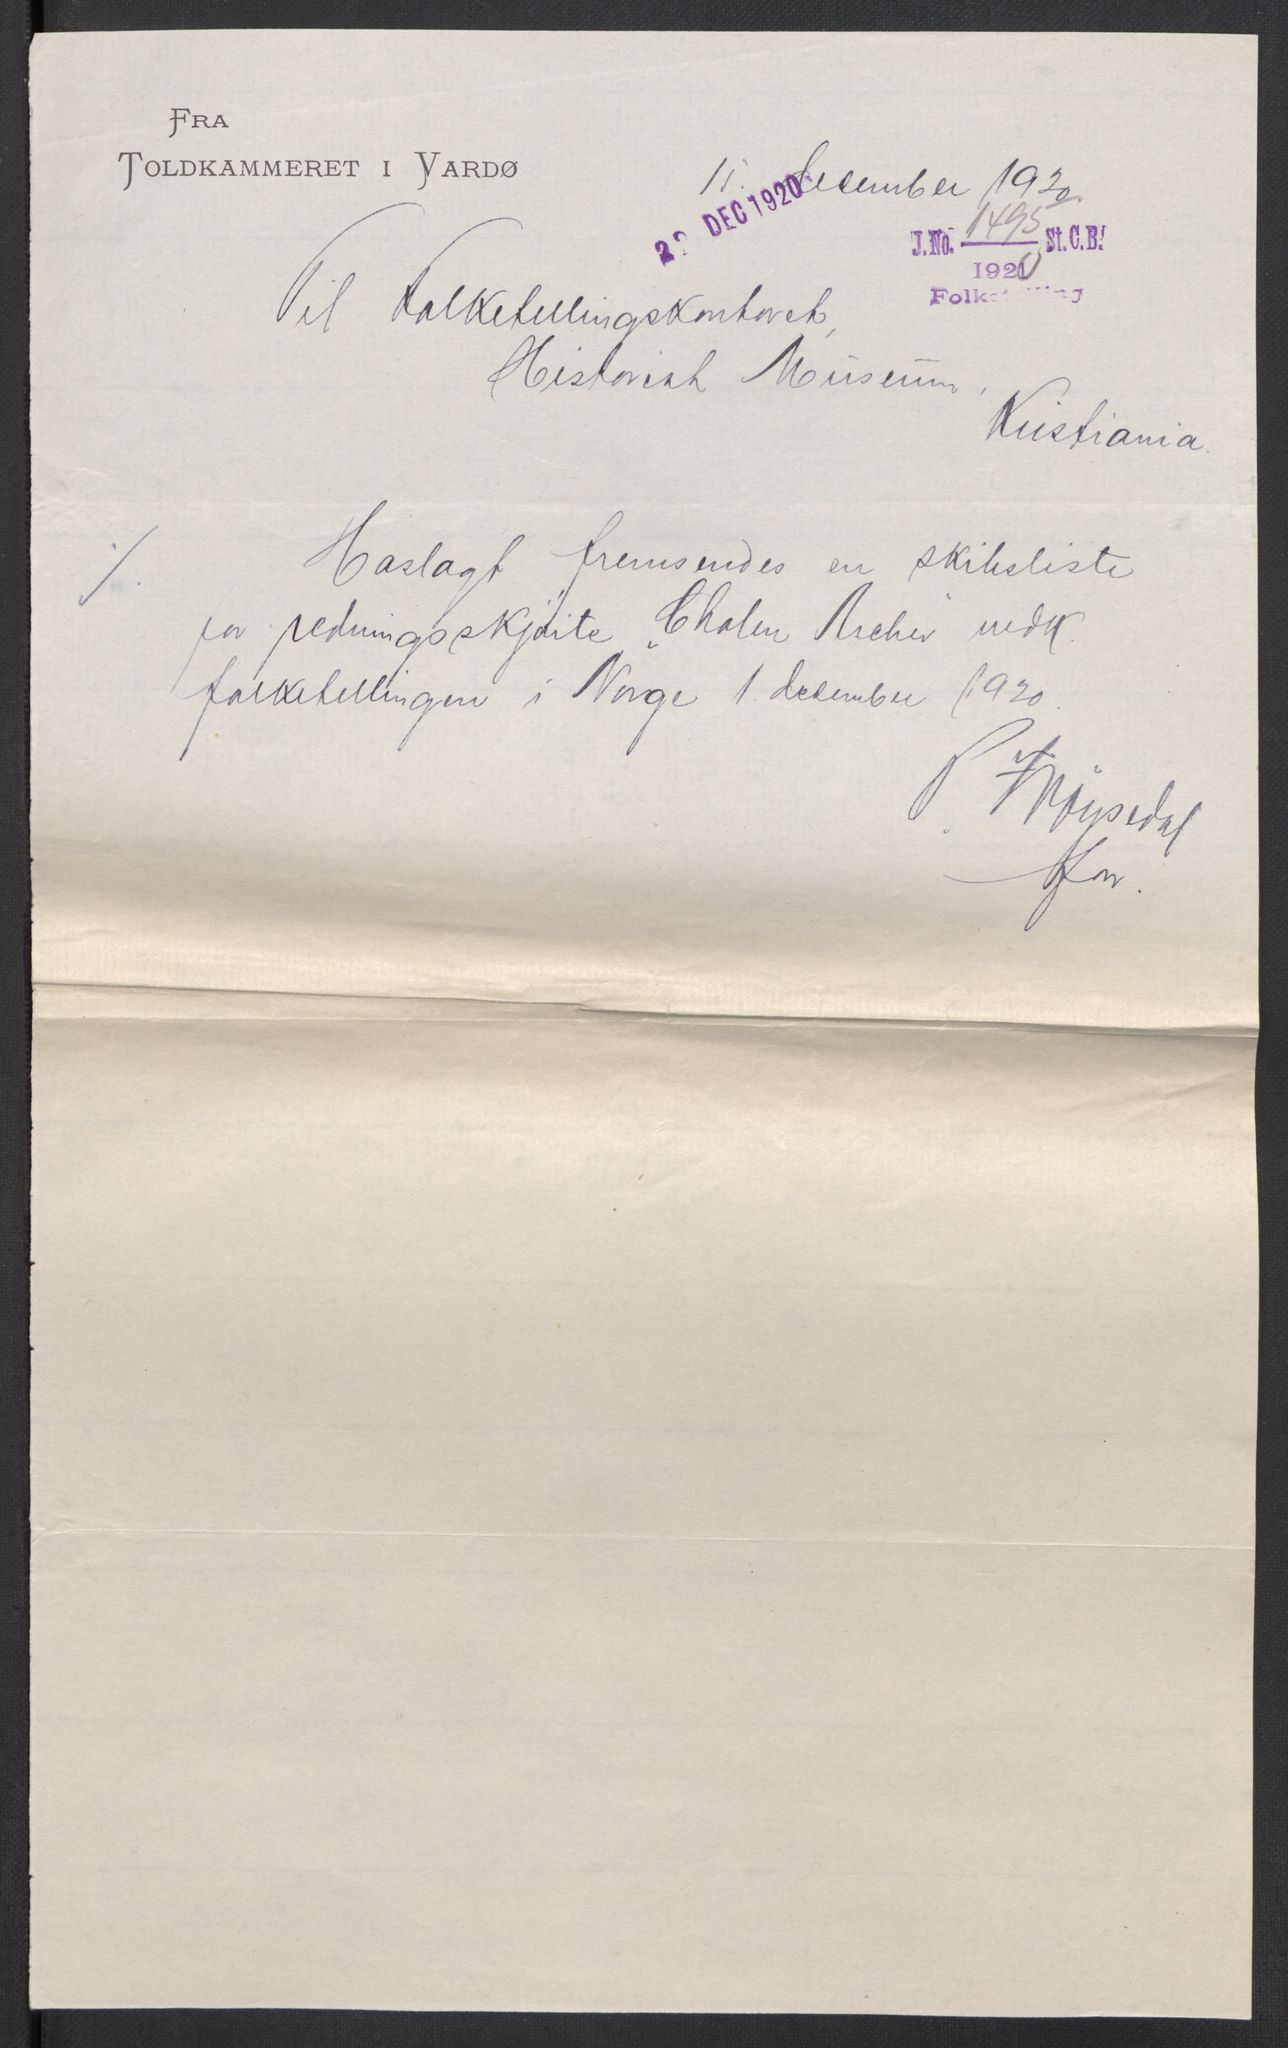 FRA
TOLDKAMMERET I VARDØ
11. december 1920.
22 DEC 1920
J.No. 1495 St.C.B.
1920
Folketelling
Til Folketellingskontoret,
Historisk Museum,
Kristiania.
·/. Haslagt fremsendes en skibsliste
for redningsskjøite "Cholen Archer" vedk.
folketellingen i Norge 1 december 1920.
P.
for.